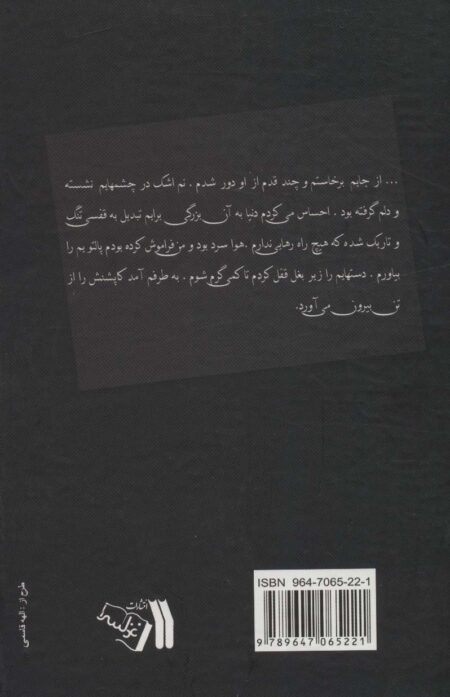 ... از جایم برخاستم و چند قدم از او دور شدم . نم اشک در چشمهایم نشسته
و دلم گرفته بود . احساس می‌کردم دنیا به آن بزرگی برایم تبدیل به قفسی تنگ
و تاریک شده که هیچ راه رهایی ندارم . هوا سرد بود و من فراموش کرده بودم پالتویم را
بیاورم . دستهایم را زیر بغل قفل کردم تا کمی گرم شوم . به طرفم آمد کاپشنش را از
تن بیرون می‌آورد.
ISBN 964-7065-22-1
9 789647 065221
انتشارات
غزلسرا
طرح از : الهه قاسمی